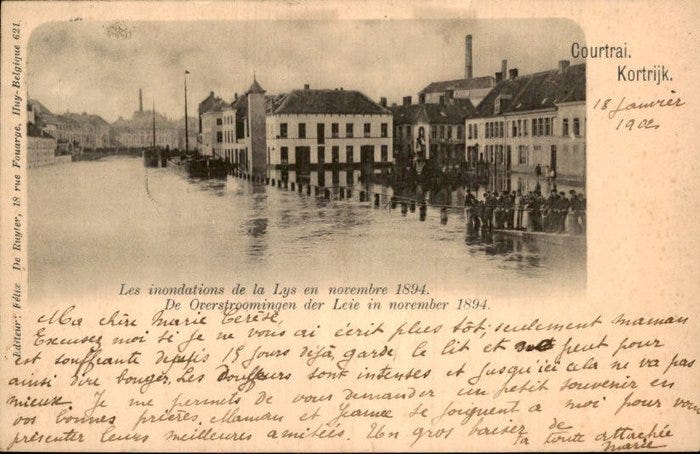 Editeur: Félix De Ruyter, 18 rue Fouarge, Huy-Belgique 621.
Courtrai.
Kortrijk.
18 Janvier
190
Les inondations de la Lys en novembre 1894.
De Overstroomingen der Leie in november 1894.
Ma chère Marie Terèse,
Excusez moi si je ne vous ai écrit plus tôt, seulement maman
est souffrante depuis 15 jours déjà, garde le lit et peut pour
ainsi dire bouger, Les Douleurs sont intenses et jusqu'ici cela ne va pas
mieux. Je me permets de vous demander un petit souvenir en
vos bonnes prières, Maman et Jeanne se joignent a moi pour vous
présenter leurs meilleures amitiés. Un gros baiser de
ta toute attachée
Marie